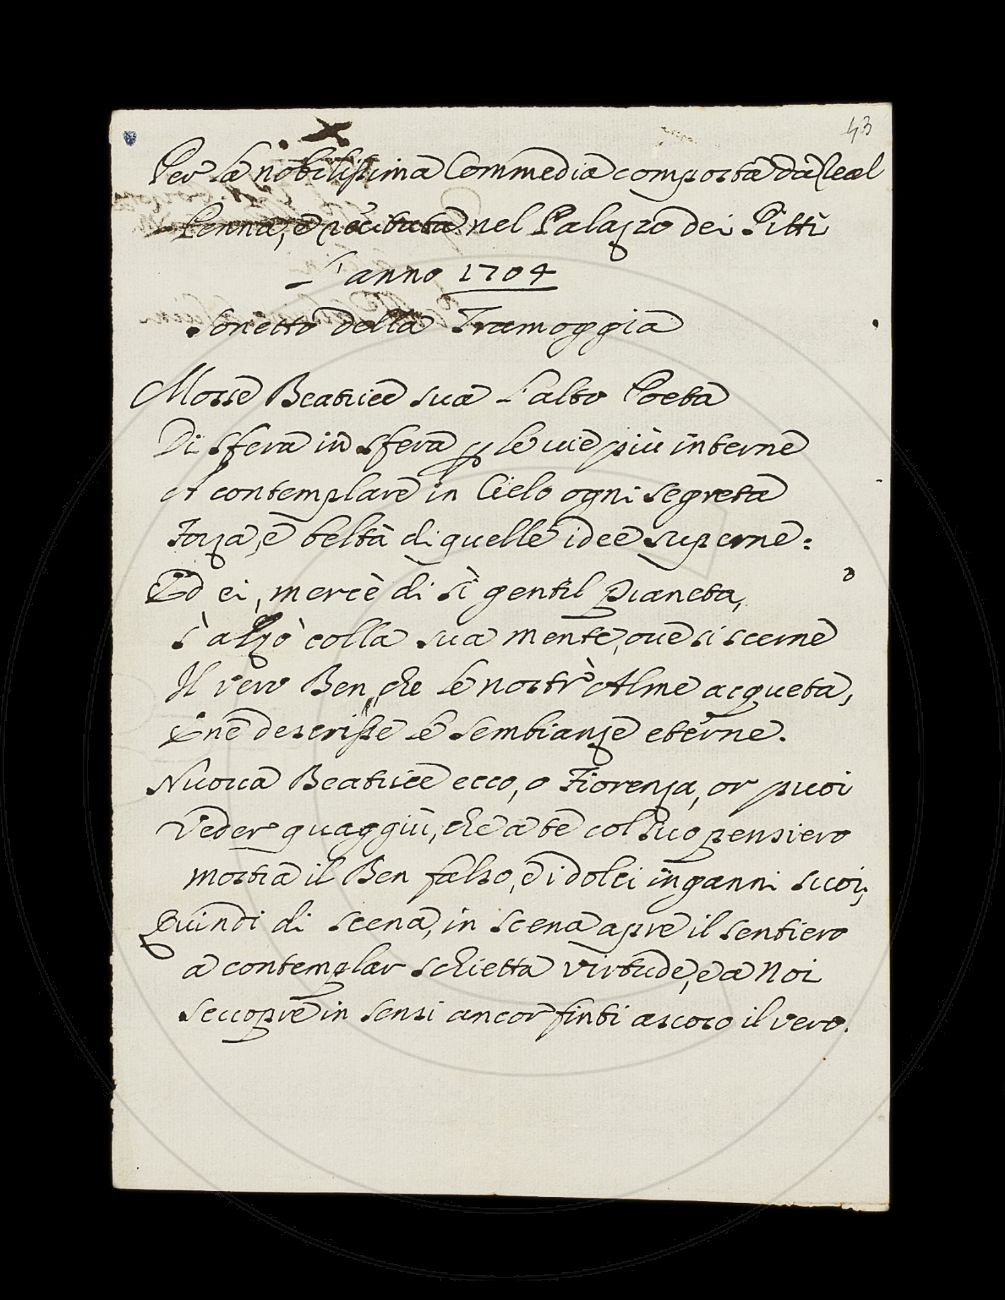 43
Per la nobilissima Commedia composta da Real
Penna, e recitata nel Palazzo dei Pitti
L'anno 1704
Sonetto della Tramoggia
Mosse Beatrice sua l'alto Poeta
Di sfera in sfera p le vie più interne
A contemplare in Cielo ogni segreta
Forza, e beltà di quelle idee superne:
Ed ei, mercè di sì gentil Pianeta,
S'alzò colla sua mente, ove si scerne
Il vero Ben, che le nostr'Alme acqueta,
E ne descrisse le sembianze eterne.
Nuova Beatrice ecco, o Fiorenza, or puoi
Veder quaggiù, che a te col suo pensiero
mostra il Ben falso, e i dolci inganni suoi,
Quindi di scena, in scena apre il sentiero
a contemplar schietta virtude, e a Noi
scuopre in sensi ancor finti ascoso il vero.